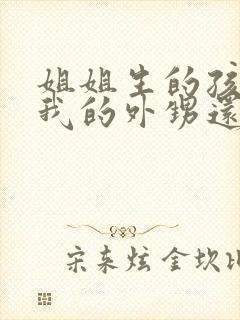 姐姐生的孩
我的外甥還
宋来炫 金坎比